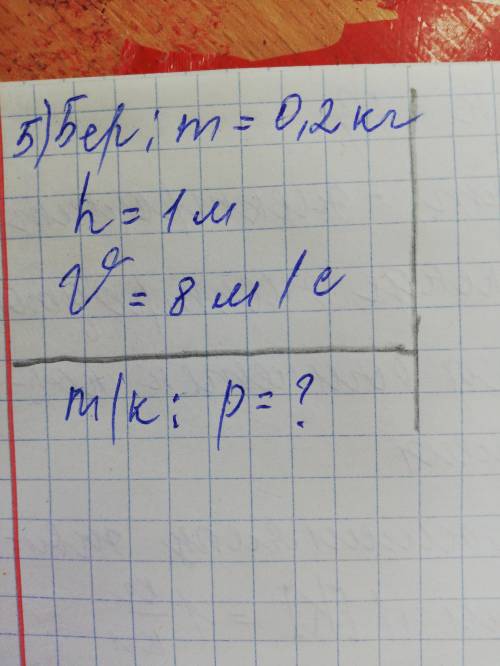 5) Бер; m = 0,2 кг
h = 1 м
V = 8 м/с
т/к; p = ?